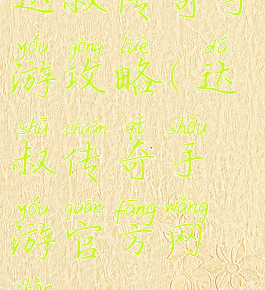 达叔传奇手
yóu gōng lüè dá
游攻略(达
shū chuán qí shǒu
叔传奇手
yóu guān fāng wǎng
游官方网
zhàn